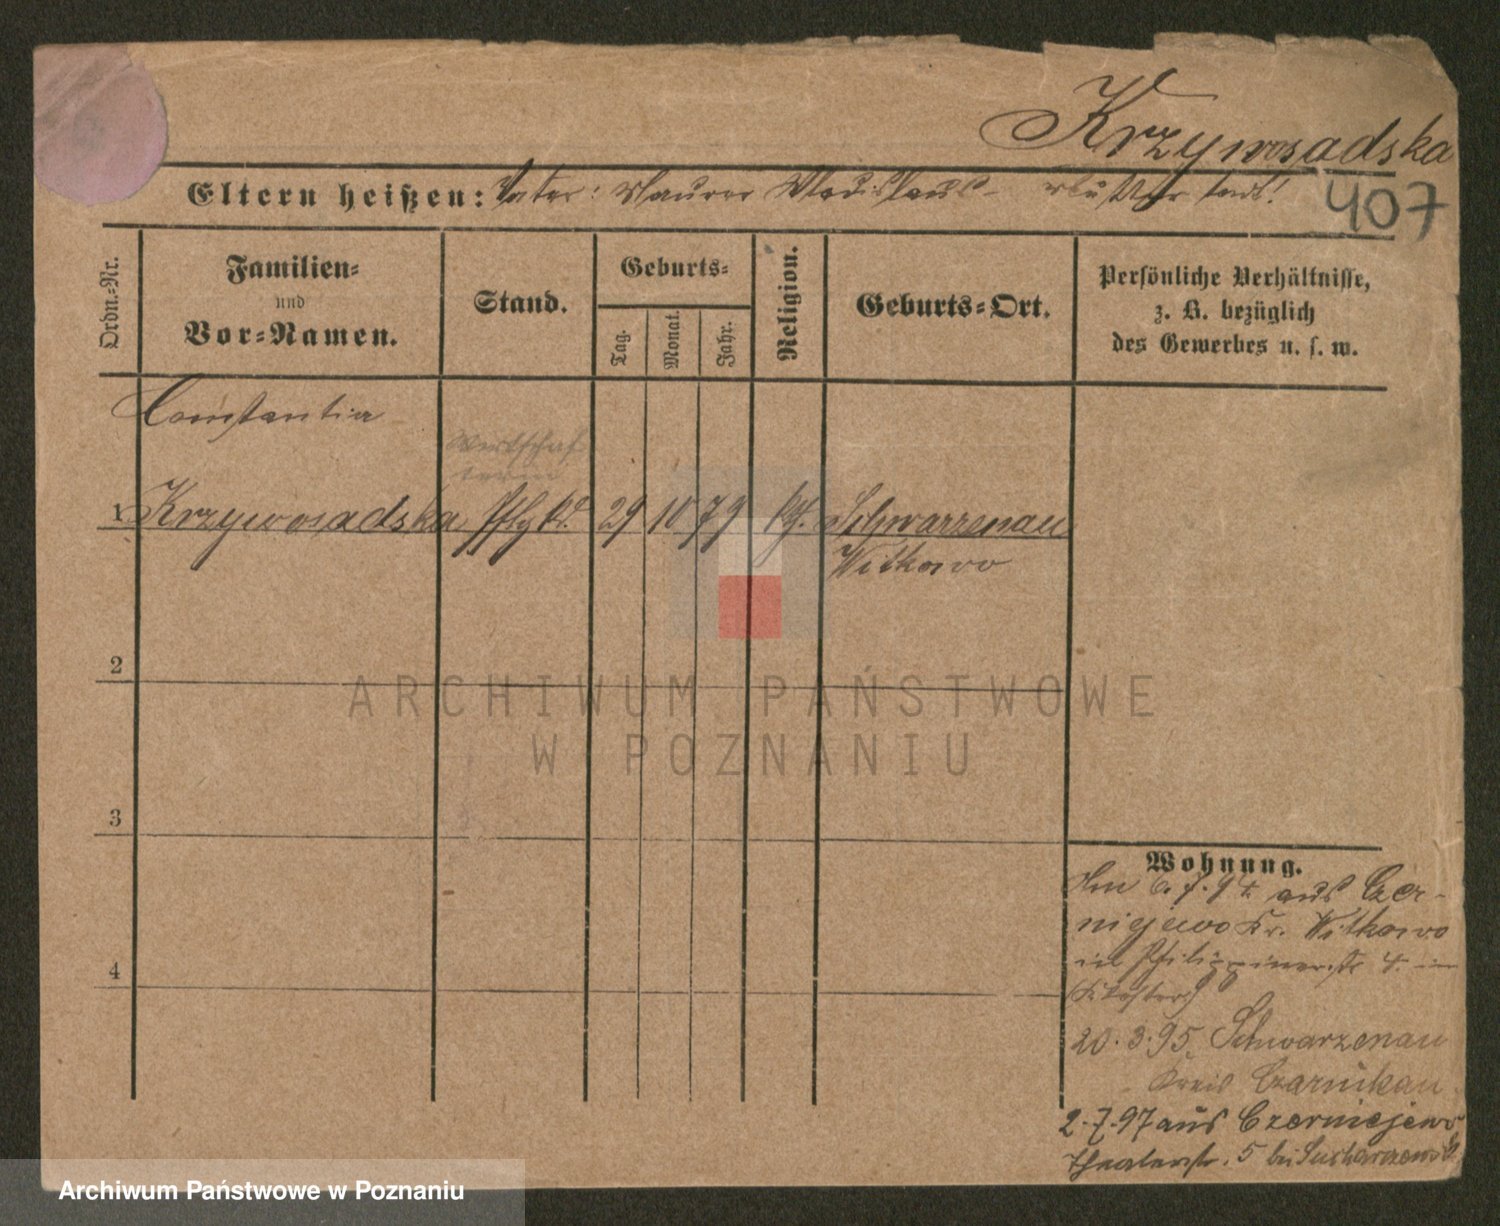 Krzywosadska
Eltern heißen: Vater: Maurer Wladislaus - Mutter tod!
407
Ordn.-Nr.
Familien-
und
Vor-Namen.
Stand.
Geburts-
Tag.
Monat.
Jahr.
Religion.
Geburts-Ort.
Persönliche Verhältnisse,
z. B. bezüglich
des Gewerbes u. s. w.
Constantia
Wirtschaf-
terin
1 Krzywosadska Pflgkd. 29 10 79 kth. Schwarzenau
Witkowo
2
3
4
Wohnung.
6. 7. 94. aus Czer-
niejewo Kr. Witkowo
in Philippinenstr 4. im
20. 3. 95. Schwarzenau
Kreis Czarnikau
2.7.97 aus Czerniejewo
Theaterstr. 5 bei
ARCHIWUM PAŃSTWOWE
W POZNANIU
Archiwum Państwowe w Poznaniu